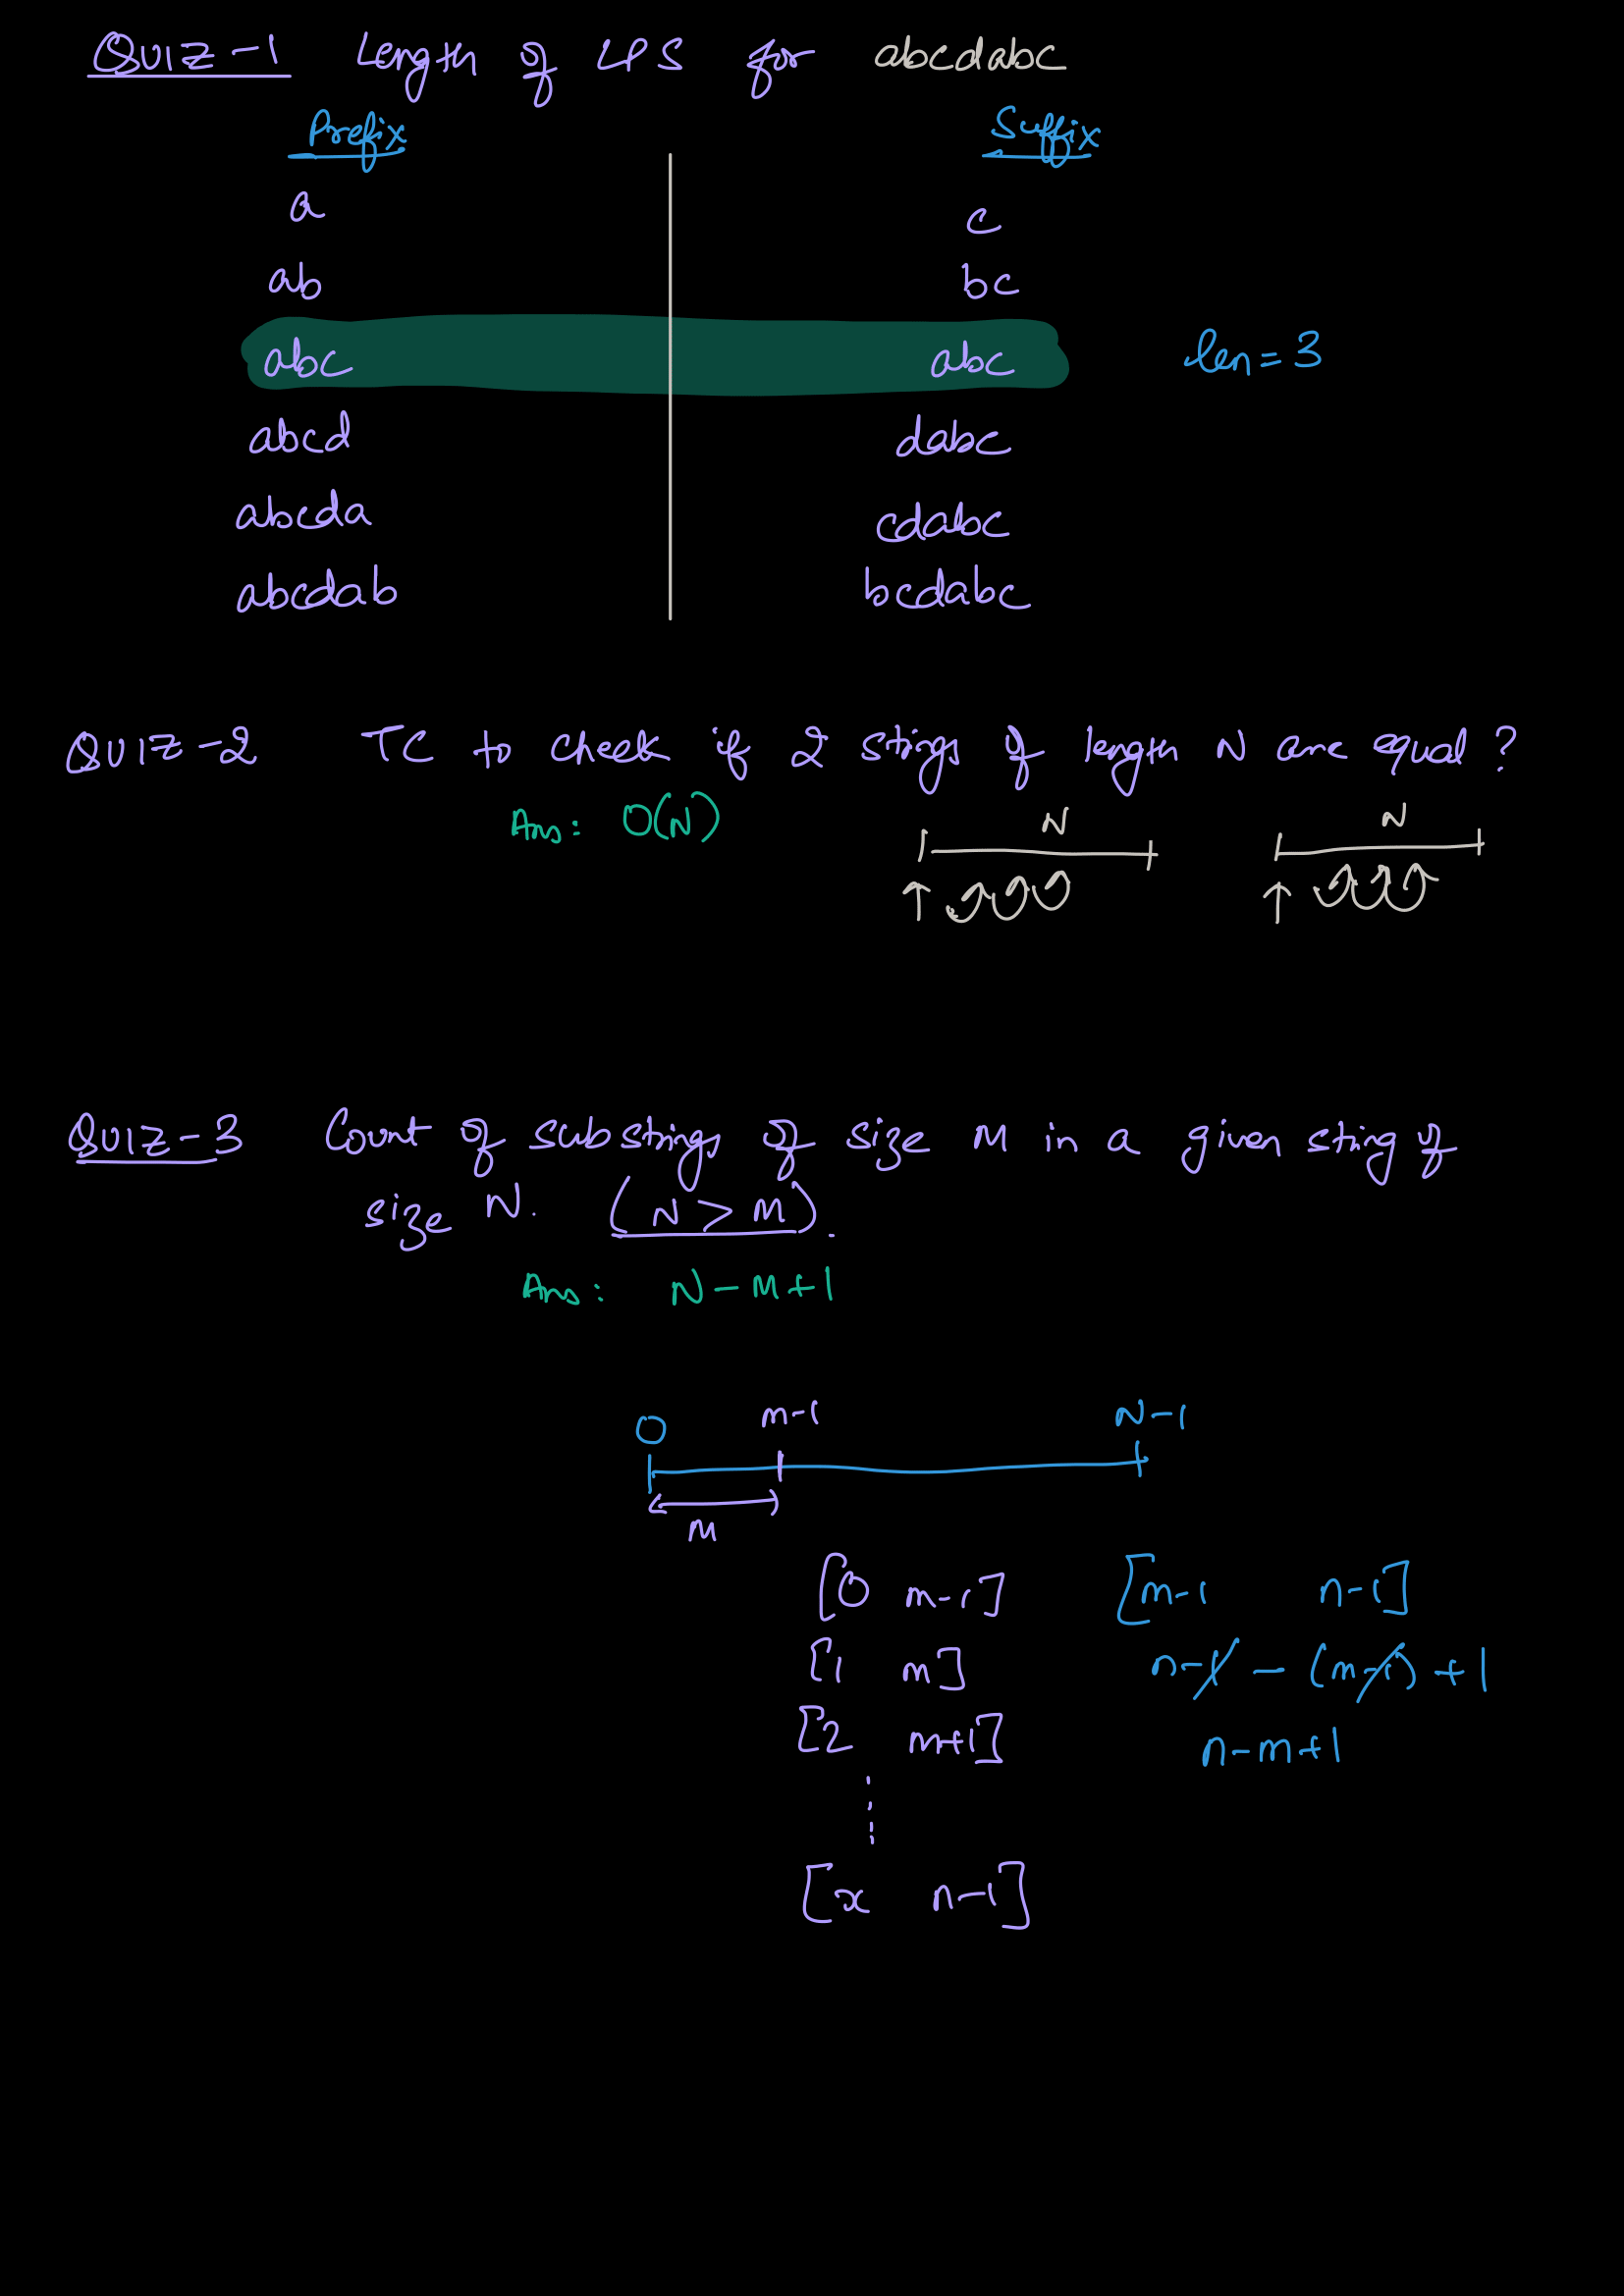 QUIZ-1 Length of LPS for abcdabc
Prefix Suffix
a c
ab bc
abc abc len=3
abcd dabc
abcda cdabc
abcdab bcdabc
QUIZ-2 TC to check if 2 stings of length N are equal ?
Ans: O(N)
N N
QUIZ-3 Count of substrings of size M in a given sting of
size N. (N > M).
Ans: N-M+1
0 m-1 N-1
M
[0 m-1] [m-1 n-1]
[1 m] n-1 - (m-1) +1
[2 m+1] n-m+1
[x n-1]